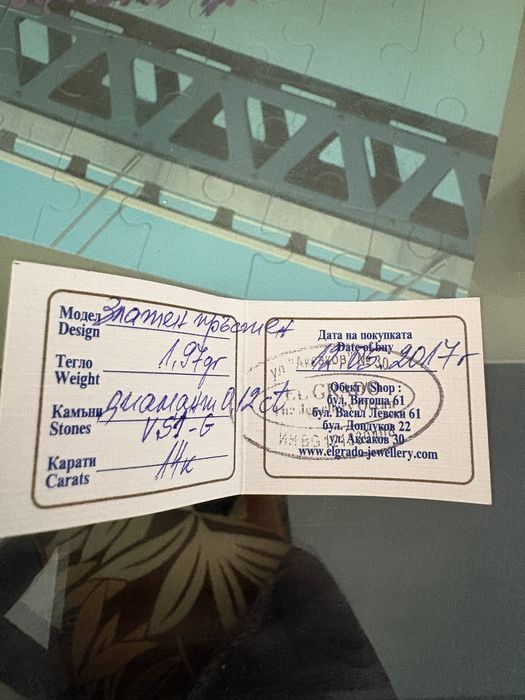 Модел
Design
Златен пръстен
Тегло
Weight
1,97gr
Камъни
Stones
диамант 0,12ct
VS1-G
Карати
Carats
14к
Дата на покупката
Date of buy
05 2017г
ул. Аксаков № 30
EL GRADO
Обект / Shop :
бул. Витоша 61
бул. Васил Левски 61
бул. Дондуков 22
ул. Аксаков 30
www.elgrado-jewellery.com
ИМ BG